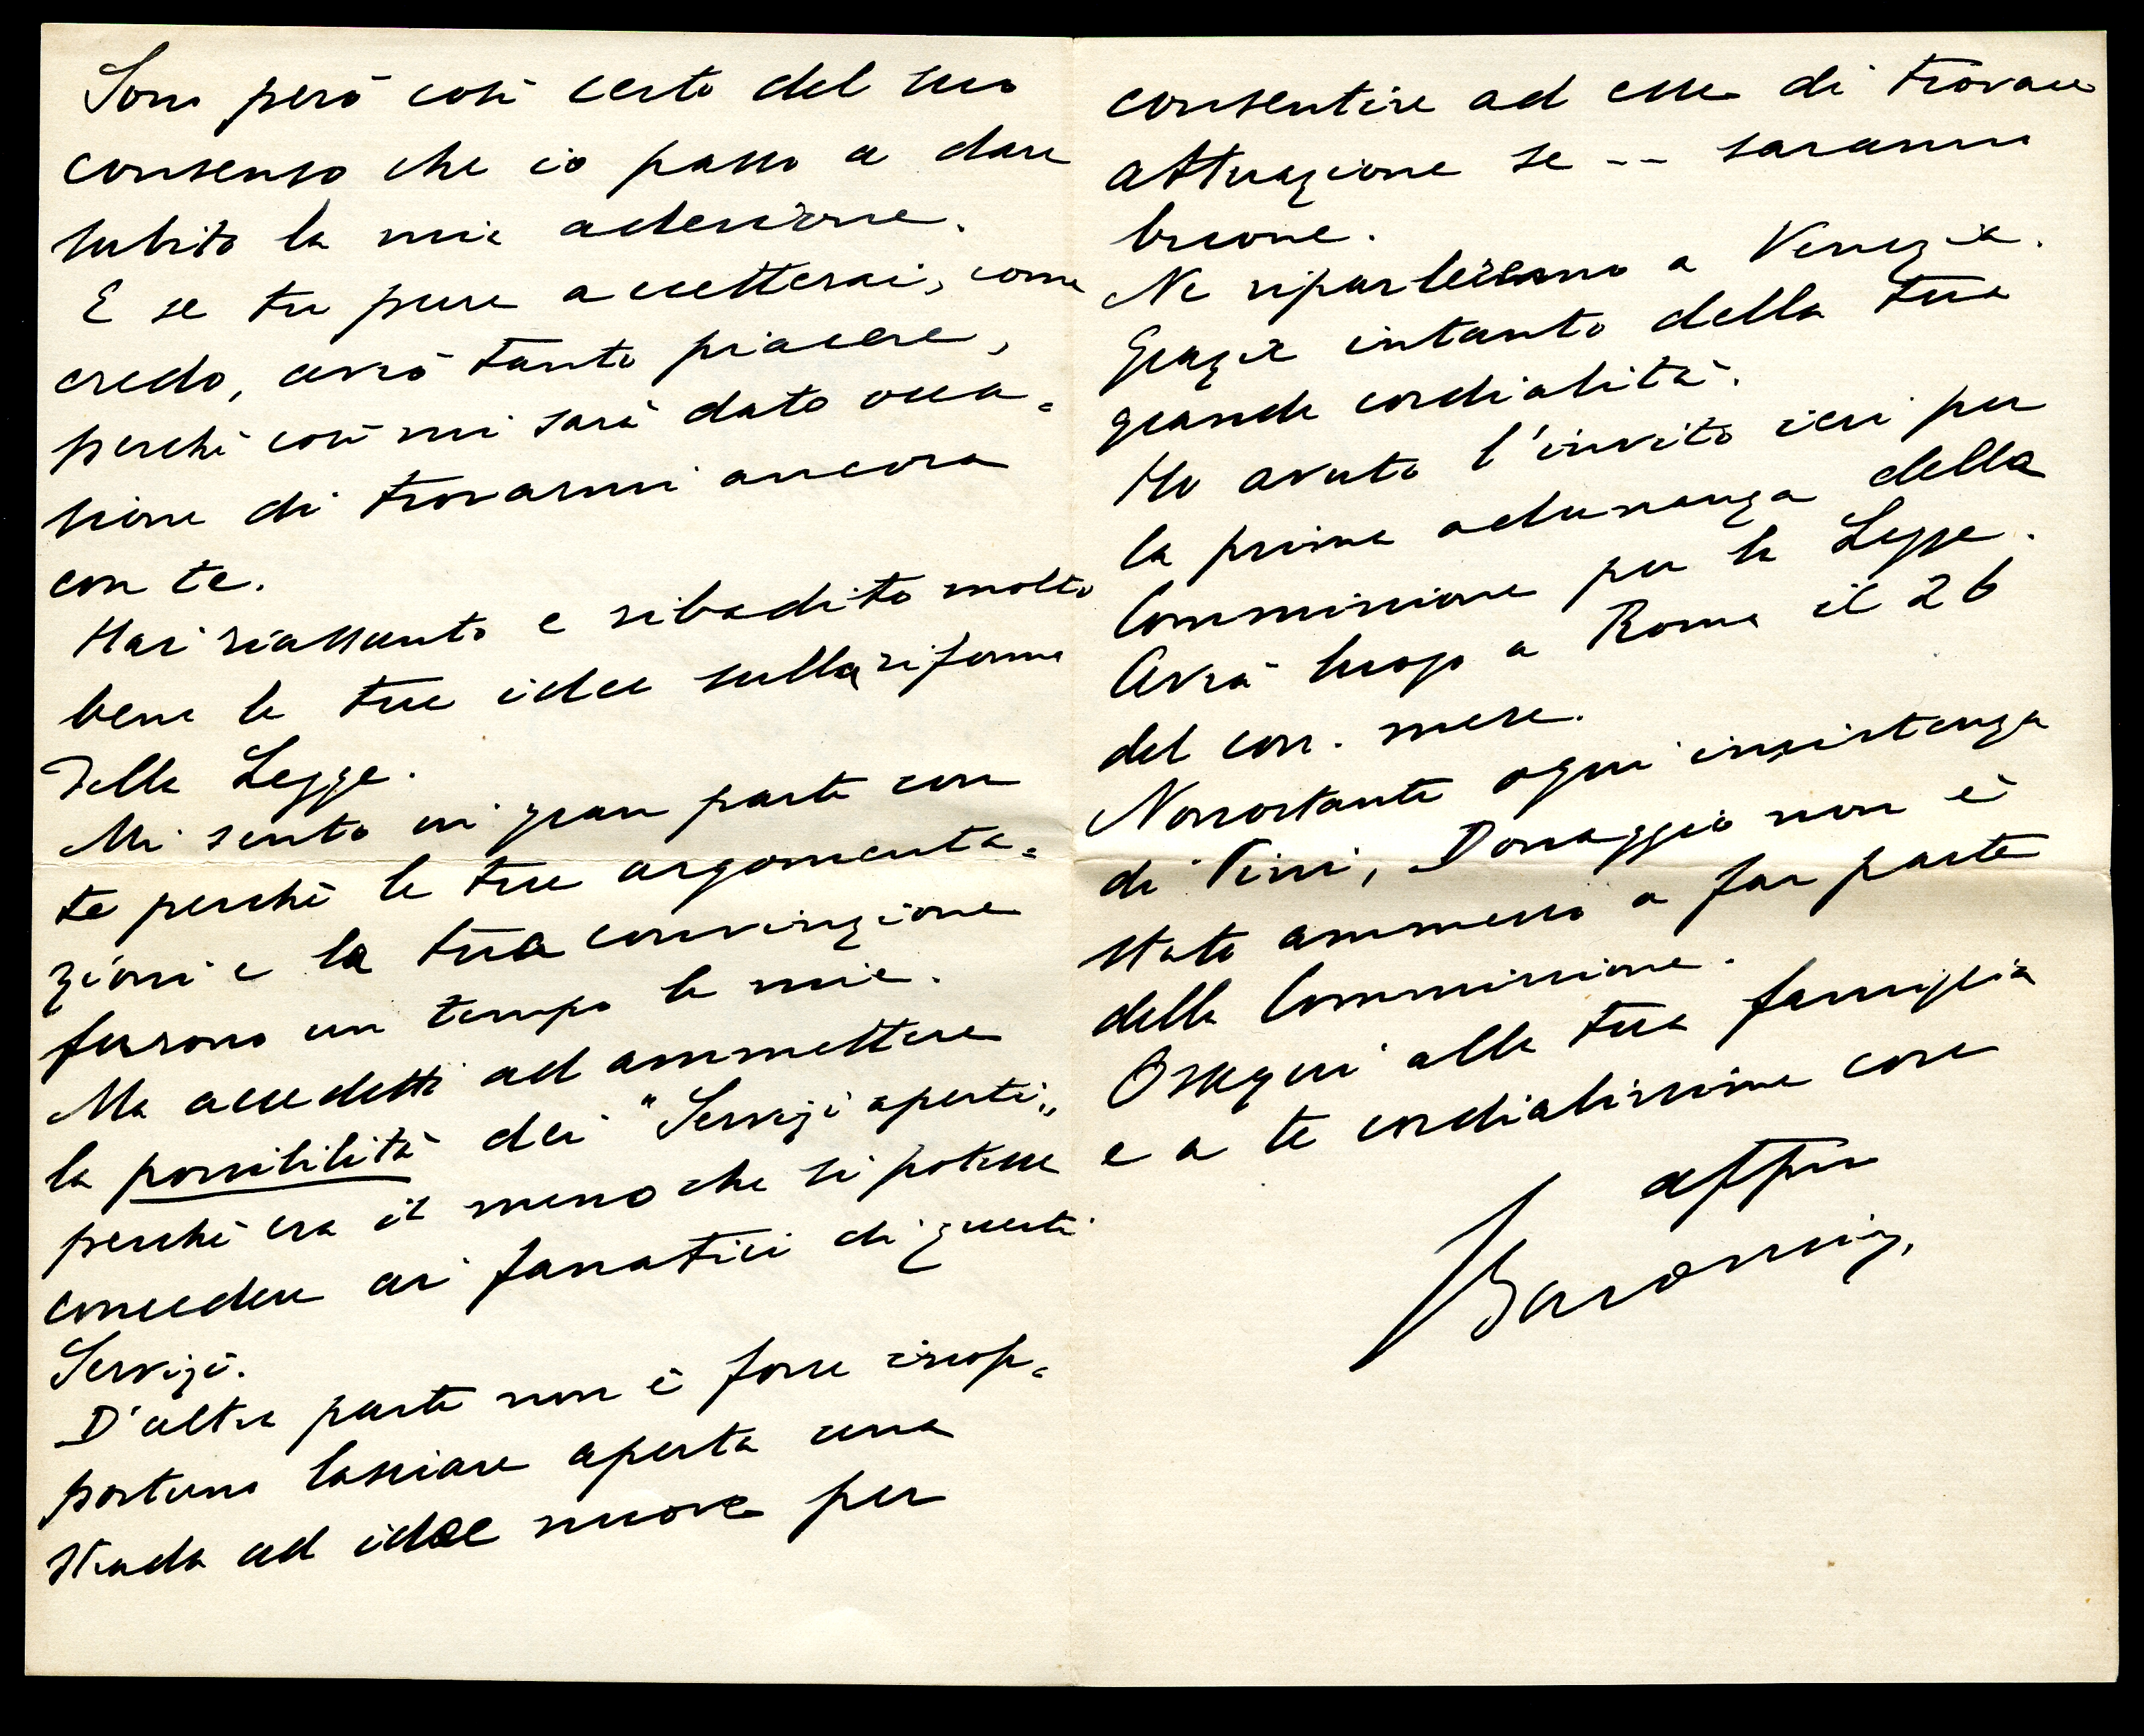 Sono però così certo del suo
consenso che io passo a dare
subito la mia adesione.
E se tu pure accetterai, come
credo, avrò tanto piacere,
perchè così mi sarà dato occa=
sione di trovarmi ancora
con te.
Hai riassunto e ribadito molto
bene le tue idee sulla riforma
della Legge.
Mi sento in gran parte con
te perchè le tue argomenta=
zioni e la tua convinzione
furono un tempo le mie.
Ma accedetti ad ammettere
la possibilità dei "Servizi aperti„
perchè era il meno che si potesse
concedere ai fanatici di questi
Servizi.
D'altra parte non è forse inop=
portuno lasciare aperta una
strada ad idee nuove per
consentire ad esse di trovare
attuazione se -- saranno
buone.
Ne riparleremo a Venezia.
Grazie intanto della tua
grande cordialità.
Ho avuto l'invito ieri per
la prima adunanza della
Commissione per la Legge.
Avrà luogo a Roma il 26
del corr. mese.
Nonostante ogni insistenza
di Pini, Donaggio non è
stato ammesso a far parte
della Commissione.
Ossequi alla tua famiglia
e a te cordialissime cose
aff.mo